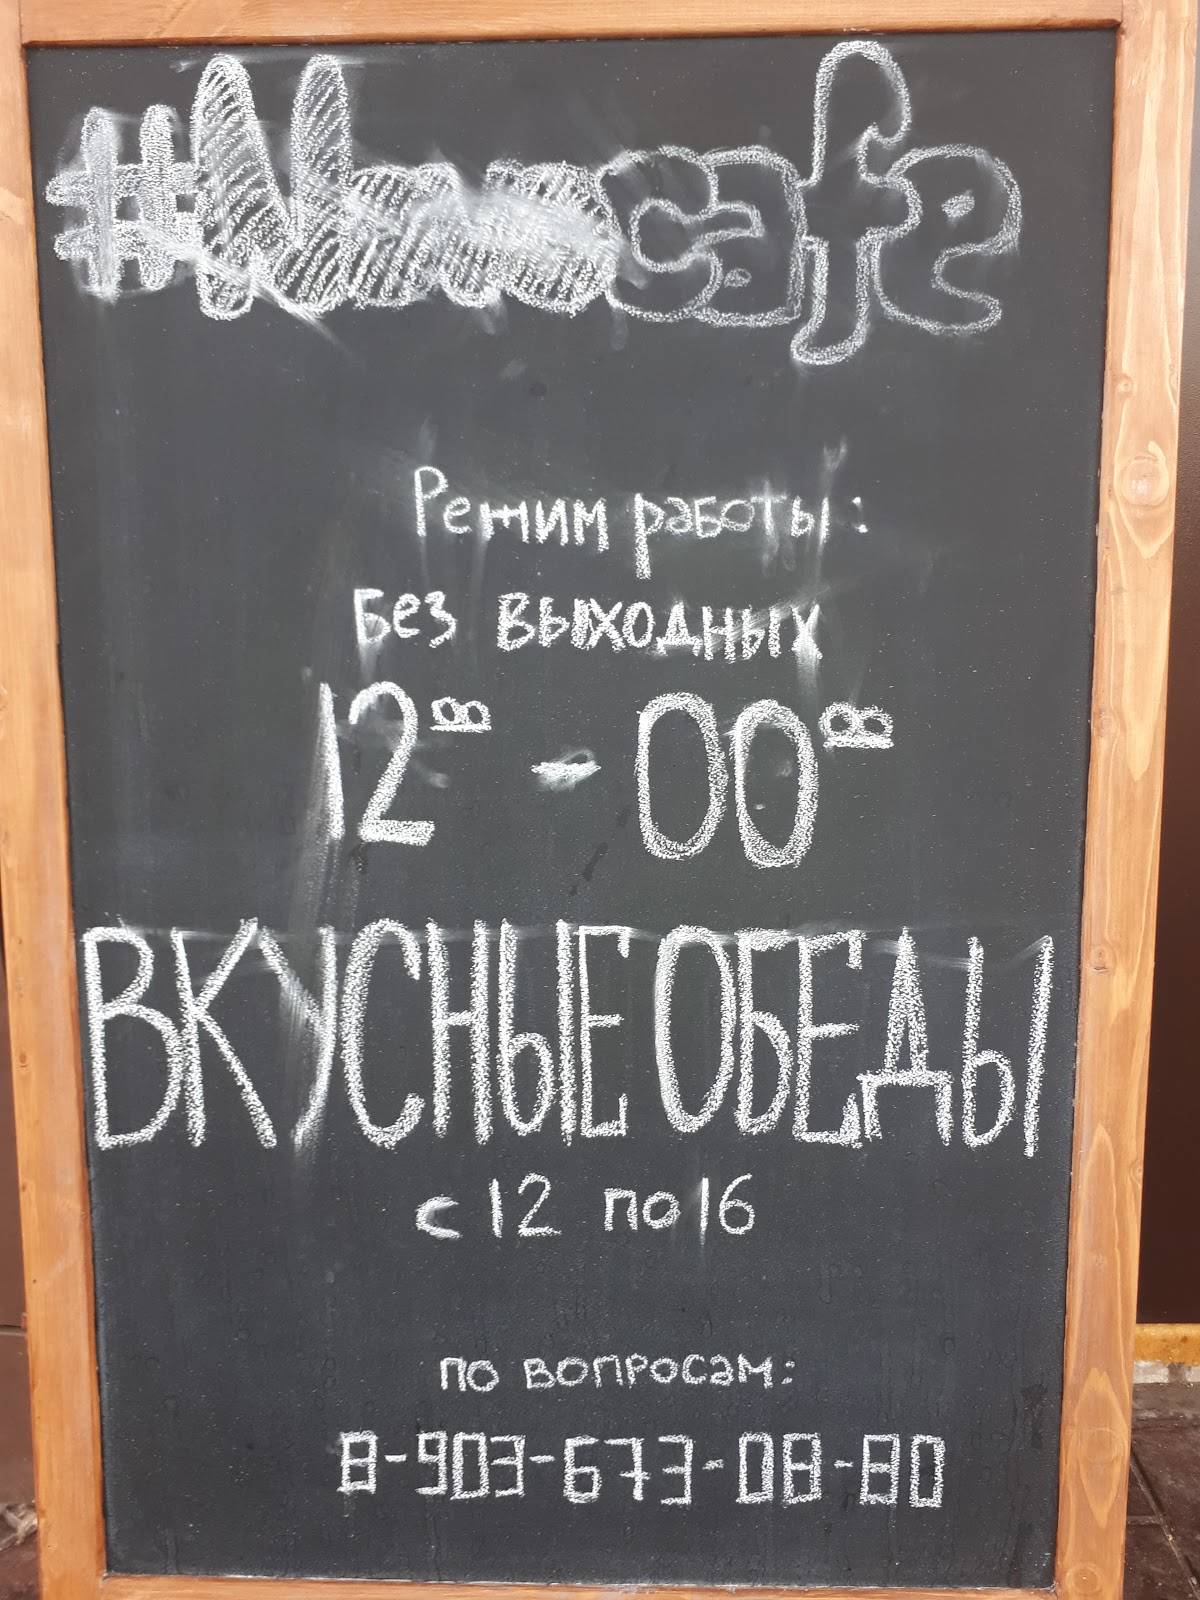 Режим работы:
Без выходных
12⁰⁰ - 00⁰⁰
ВКУСНЫЕ ОБЕДЫ
с 12 по 16
по вопросам:
8-903-673-08-80